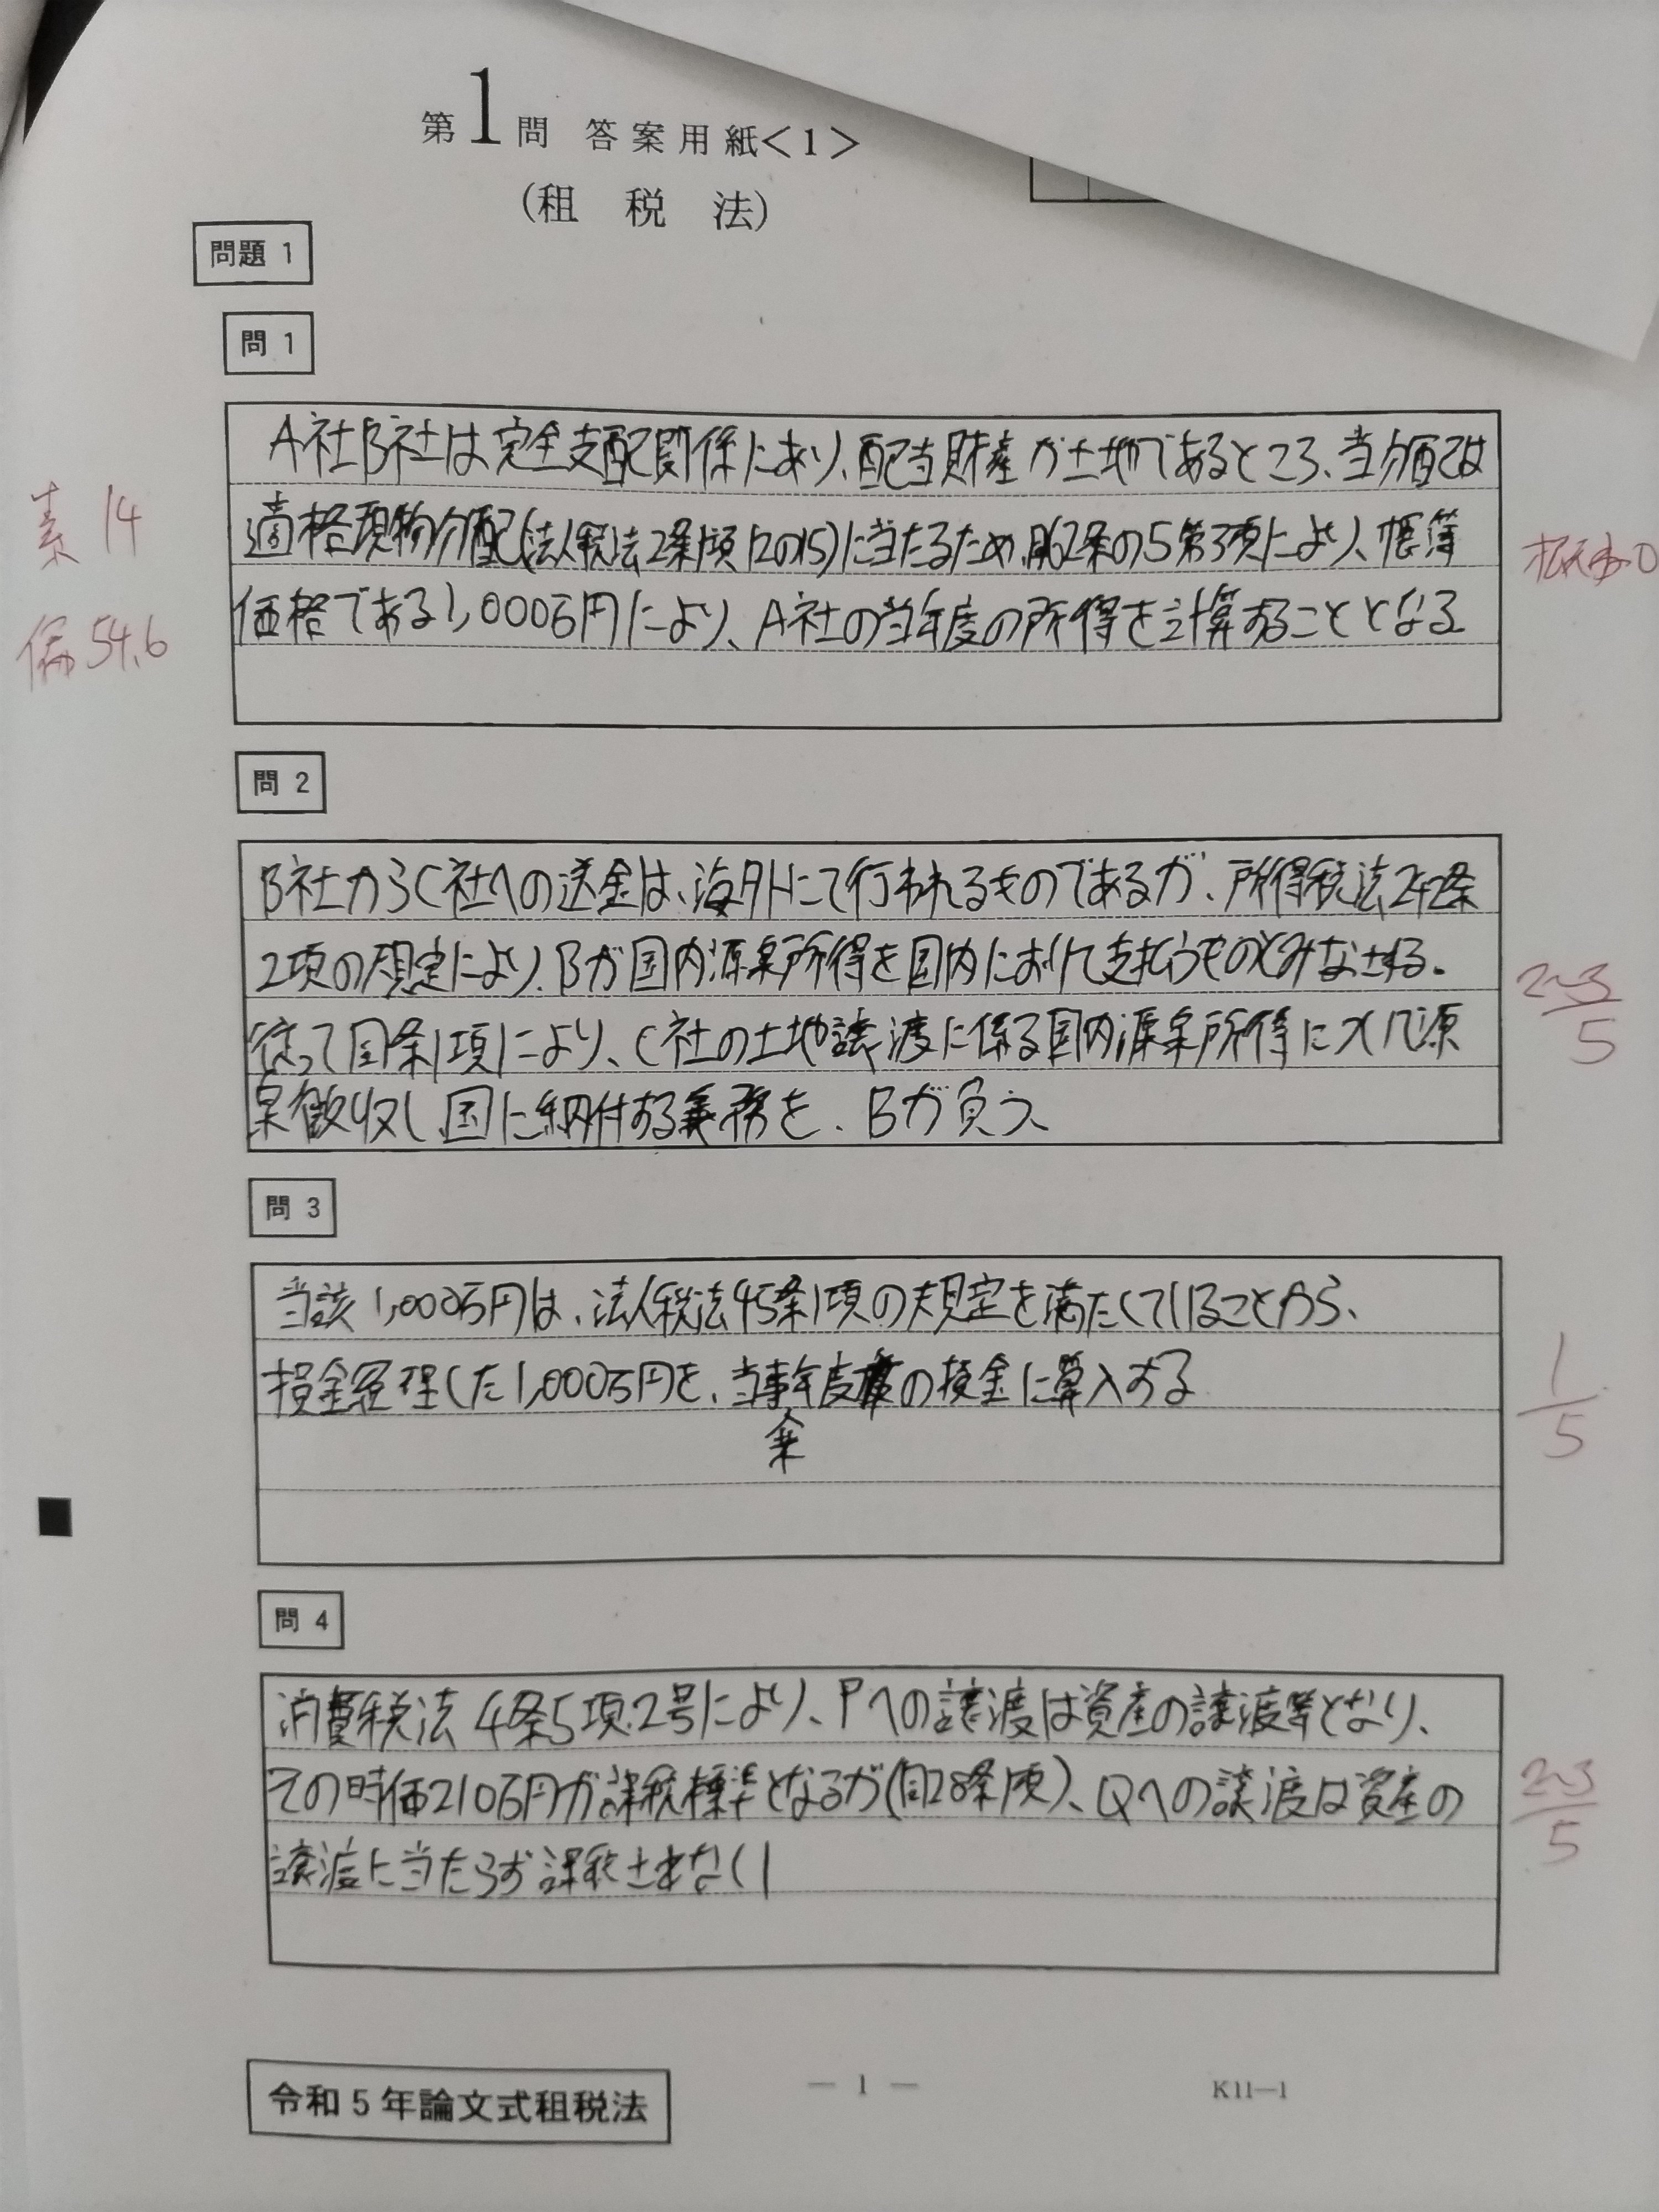 第1問 答案用紙<1>
(租税法)
問題 1
問 1
A社B社は完全支配関係にあり、配当財産が土地であるところ、当分配は
適格現物分配(法人税法2条1項12の15)に当たるため、62条の5第3項により、帳簿
価格である1,000万円により、A社の当年度の所得を計算することとなる
素 14
偏 54.6
問 2
B社からC社への送金は、海外にて行われるものであるが、所得税法212条
2項の規定により、Bが国内源泉所得を国内において支払うものとみなされる。
従って同条1項により、C社の土地譲渡に係る国内源泉所得に対し源
泉徴収し国に納付する義務を、Bが負う、
2~3/5
問 3
当該1,000万円は、法人税法45条1項の規定を満たしていることから、
損金経理した1,000万円を、当事業年度の損金に算入する
1/5
問 4
消費税法4条5項2号により、Pへの譲渡は資産の譲渡等となり、
その時価210万円が課税標準となるが(同28条1項)、Qへの譲渡は資産の
譲渡に当たらず課税されない
2~3/5
令和5年論文式租税法
— 1 —
K11—1